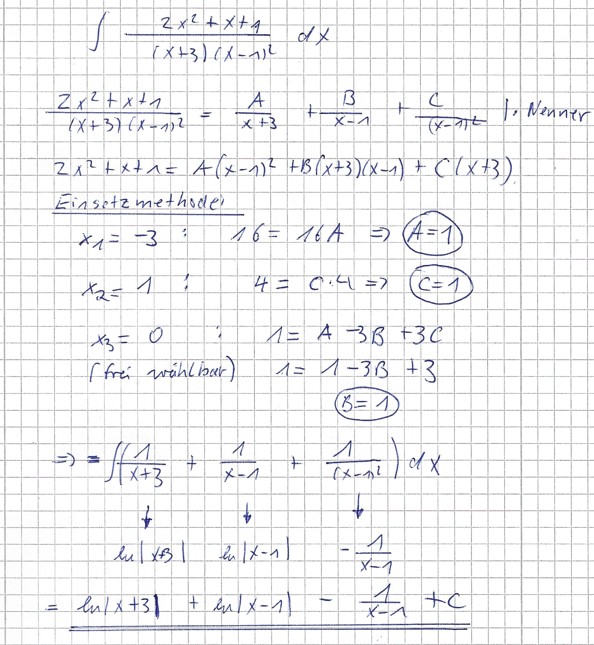 ∫ (2x² + x + 1) / ((x+3)(x-1)²) dx
(2x² + x + 1) / ((x+3)(x-1)²) = A/(x+3) + B/(x-1) + C/(x-1)² |· Nenner
2x² + x + 1 = A(x-1)² + B(x+3)(x-1) + C(x+3)
Einsetzmethode:
x₁ = -3 : 16 = 16A => A=1
x₂ = 1 : 4 = C·4 => C=1
x₃ = 0 : 1 = A - 3B + 3C
(frei wählbar) 1 = 1 - 3B + 3
B = 1
=> = ∫(1/(x+3) + 1/(x-1) + 1/(x-1)²) dx
↓ ↓ ↓
ln|x+3| ln|x-1| - 1/(x-1)
= ln|x+3| + ln|x-1| - 1/(x-1) + C